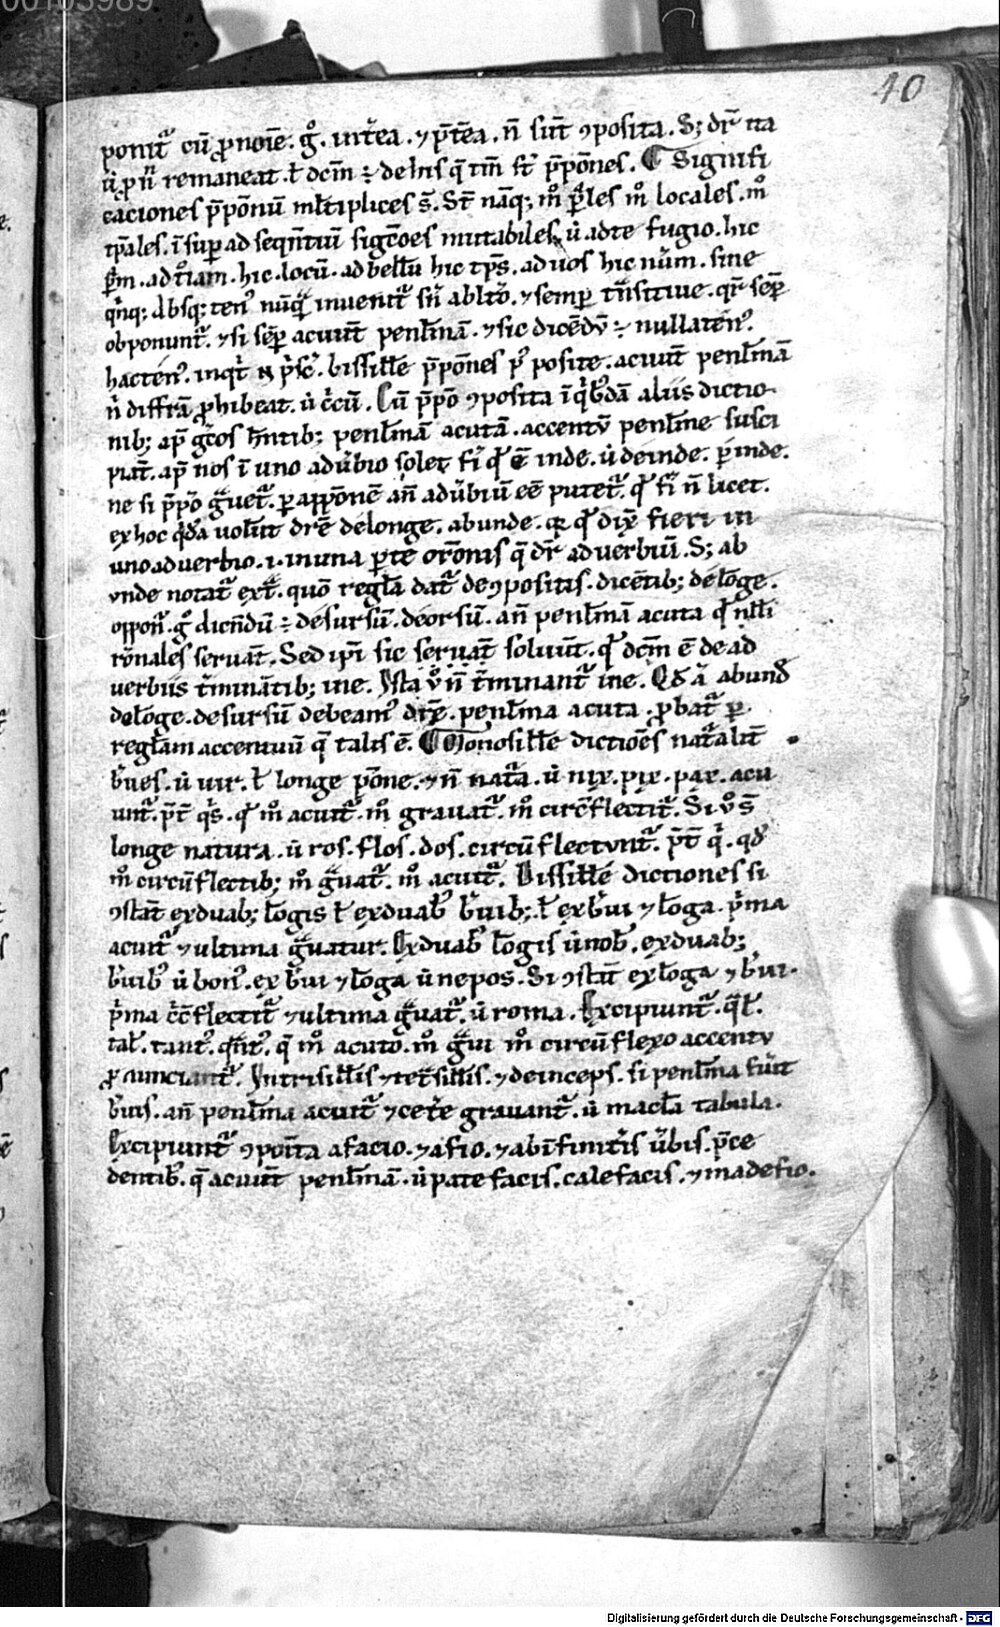 40
ponit᷑ cū ꝓnoīe. gͦ. int̄ea. ⁊ p̄t̄ea. n̄ sūt ꝯposita. S; dr̄ na
remaneat. ł dcm̄ ÷ de hiis q̄ tm̄ st̄ p̄pōnes. ¶ Signifi
caciones p̄pōnū ml̄tiplices s̄. St̄ nāq; mͦ ꝑsōales mͦ locales. mͦ
tꝑales. ī suꝑ ad seqn̄tiū sigc̄oes mutabiles. ů ad te fugio. hic
ꝑsm̄. ad t̄iam. hic. locū. ad bellū hic tp̄s. ad uos hic nūm. sine
absq; ten᷒ nūq̄ invenit᷑ sn̄ abltō. ⁊ semꝑ tn̄sitiue. qr̄ seꝑ
obponunt᷑. ⁊ si seꝑ acuūt penl̄mā. ⁊ sic dicēdū ÷ nullatēn᷒.
hactén᷒. inqt̄ p̄sc᷒. bissill̄e p̄pōnes p᷒posite. acuūt penl̄mā
n̄ diffr̄ā ꝓhibeat. ů c̄cū. Cū p̄pō ꝯposita ī q̄bdā aliis dictio
nib; ap̄ gc̄os hn̄tib; penl̄mā acutā. accentū penl̄me susci
piat̄. ap̄ nos ī uno adůbio solet fi̇ qͩ ē inde. ů deinde. ꝑinde.
ne si p̄pō g̃uet᷑. ꝑ appōnē añ adůbiū eē putet᷑. qͩ fi̇ n̄ licet.
ex hoc q̇dā uolūt dr̄e délonge. abunde. qꝛ qͩ dix̄ fieri in
uno aduerbio .i. in una ꝑte orōnis q̄ dr̄ aduerbiū. S; ab
unde notat᷑ ext̄. quō regl̄a dat᷑ de ꝯpositis. dicētib; delōge.
oppon̄. gͦ dicn̄dū ÷ désursū. déorsū. añ penl̄mā acuta qͩ nłł
rōnales seruāt. Sed ip̄i sic seruāt soluūt. qͩ dcm̄ ē de ad
uerbiis t̄minātib; in e. Ista ůͦ n̄ t̄minant᷑ in e. Qd̄ ā abund̄
delōge. desursū debeam᷒ dic̄e. penl̄ma acuta. ꝓbat᷑ ꝑ
regl̄am accentuū q̄ talis ē. ¶ Monosill̄e dictiōes nat᷑alit̄
b̄ues. ů uir. ł longe pōne. ⁊ n̄ nat̄a. ů nix. pix. pax. acu
unt᷑. p̄t̄ q̇s. qͩ mͦ acuit᷑. mͦ grauat᷑. mͦ circū̄flectit᷑. Si ůͦ s̄
longe natura. ů ros. flos. dos. circūflectunt᷑. p̄t̄ q̇. qd̄
mͦ circūflectib; mͦ g̃uat᷑. mͦ acuit᷑. Bissill̄e dictiones si
ꝯstāt ex duab; lōgis ł ex duab᷒ b̄uib; ł ex b̄ui ⁊ lōga. ṗma
acuit᷑ ⁊ ultima g̃uatur. Ex duab᷒ lōgis ů nob᷒. ex duab;
b̄uib᷒ ů bon᷒. ex b̄ui ⁊ lōga ů nepos. Si ꝯstāt ex lōga ⁊ b̄ui.
ṗma c̄c̄flectit᷑ ⁊ ultima g̃uat᷑. ů roma. Excipiunt᷑. q̄l᷒.
tal᷒. tant᷒. q̄nt᷒. q̄ mͦ acuto. mͦ g̃ui mͦ circūflexo accentu
ꝓnunciant᷑. In trisill̄is ⁊ tet̄sill̄is. ⁊ deinceps. si penl̄ma fu̇it
b̄uis. añ penl̄ma acuit᷑ ⁊ cet̄e grauant᷑. ů macl̄a tabula.
Excipiunt᷑ ꝯpoīta a facio. ⁊ a fio. ⁊ ab īfinitis ůbis. p̄ce
dentib᷒. q̄ acuūt penl̄mā. ů patefacis. calefacis. ⁊ madefio.
Digitalisierung gefördert durch die Deutsche Forschungsgemeinschaft - DFG